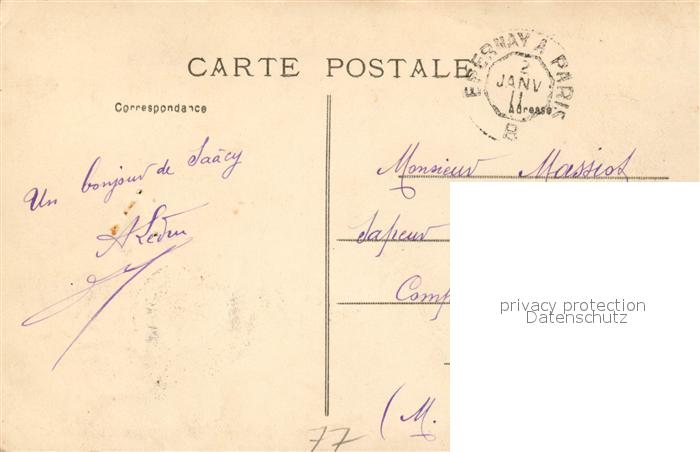 CARTE POSTALE
EPERNAY A PARIS
2
JANV
11
8
Correspondance
Adresse
Un bonjour de Saâcy
A Ledru
Monsieur Massiot
Sapeur
Comp
(M.
77
privacy protection
Datenschutz